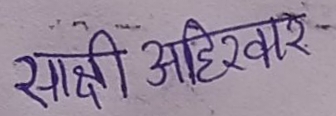 साक्षी अहिरवार